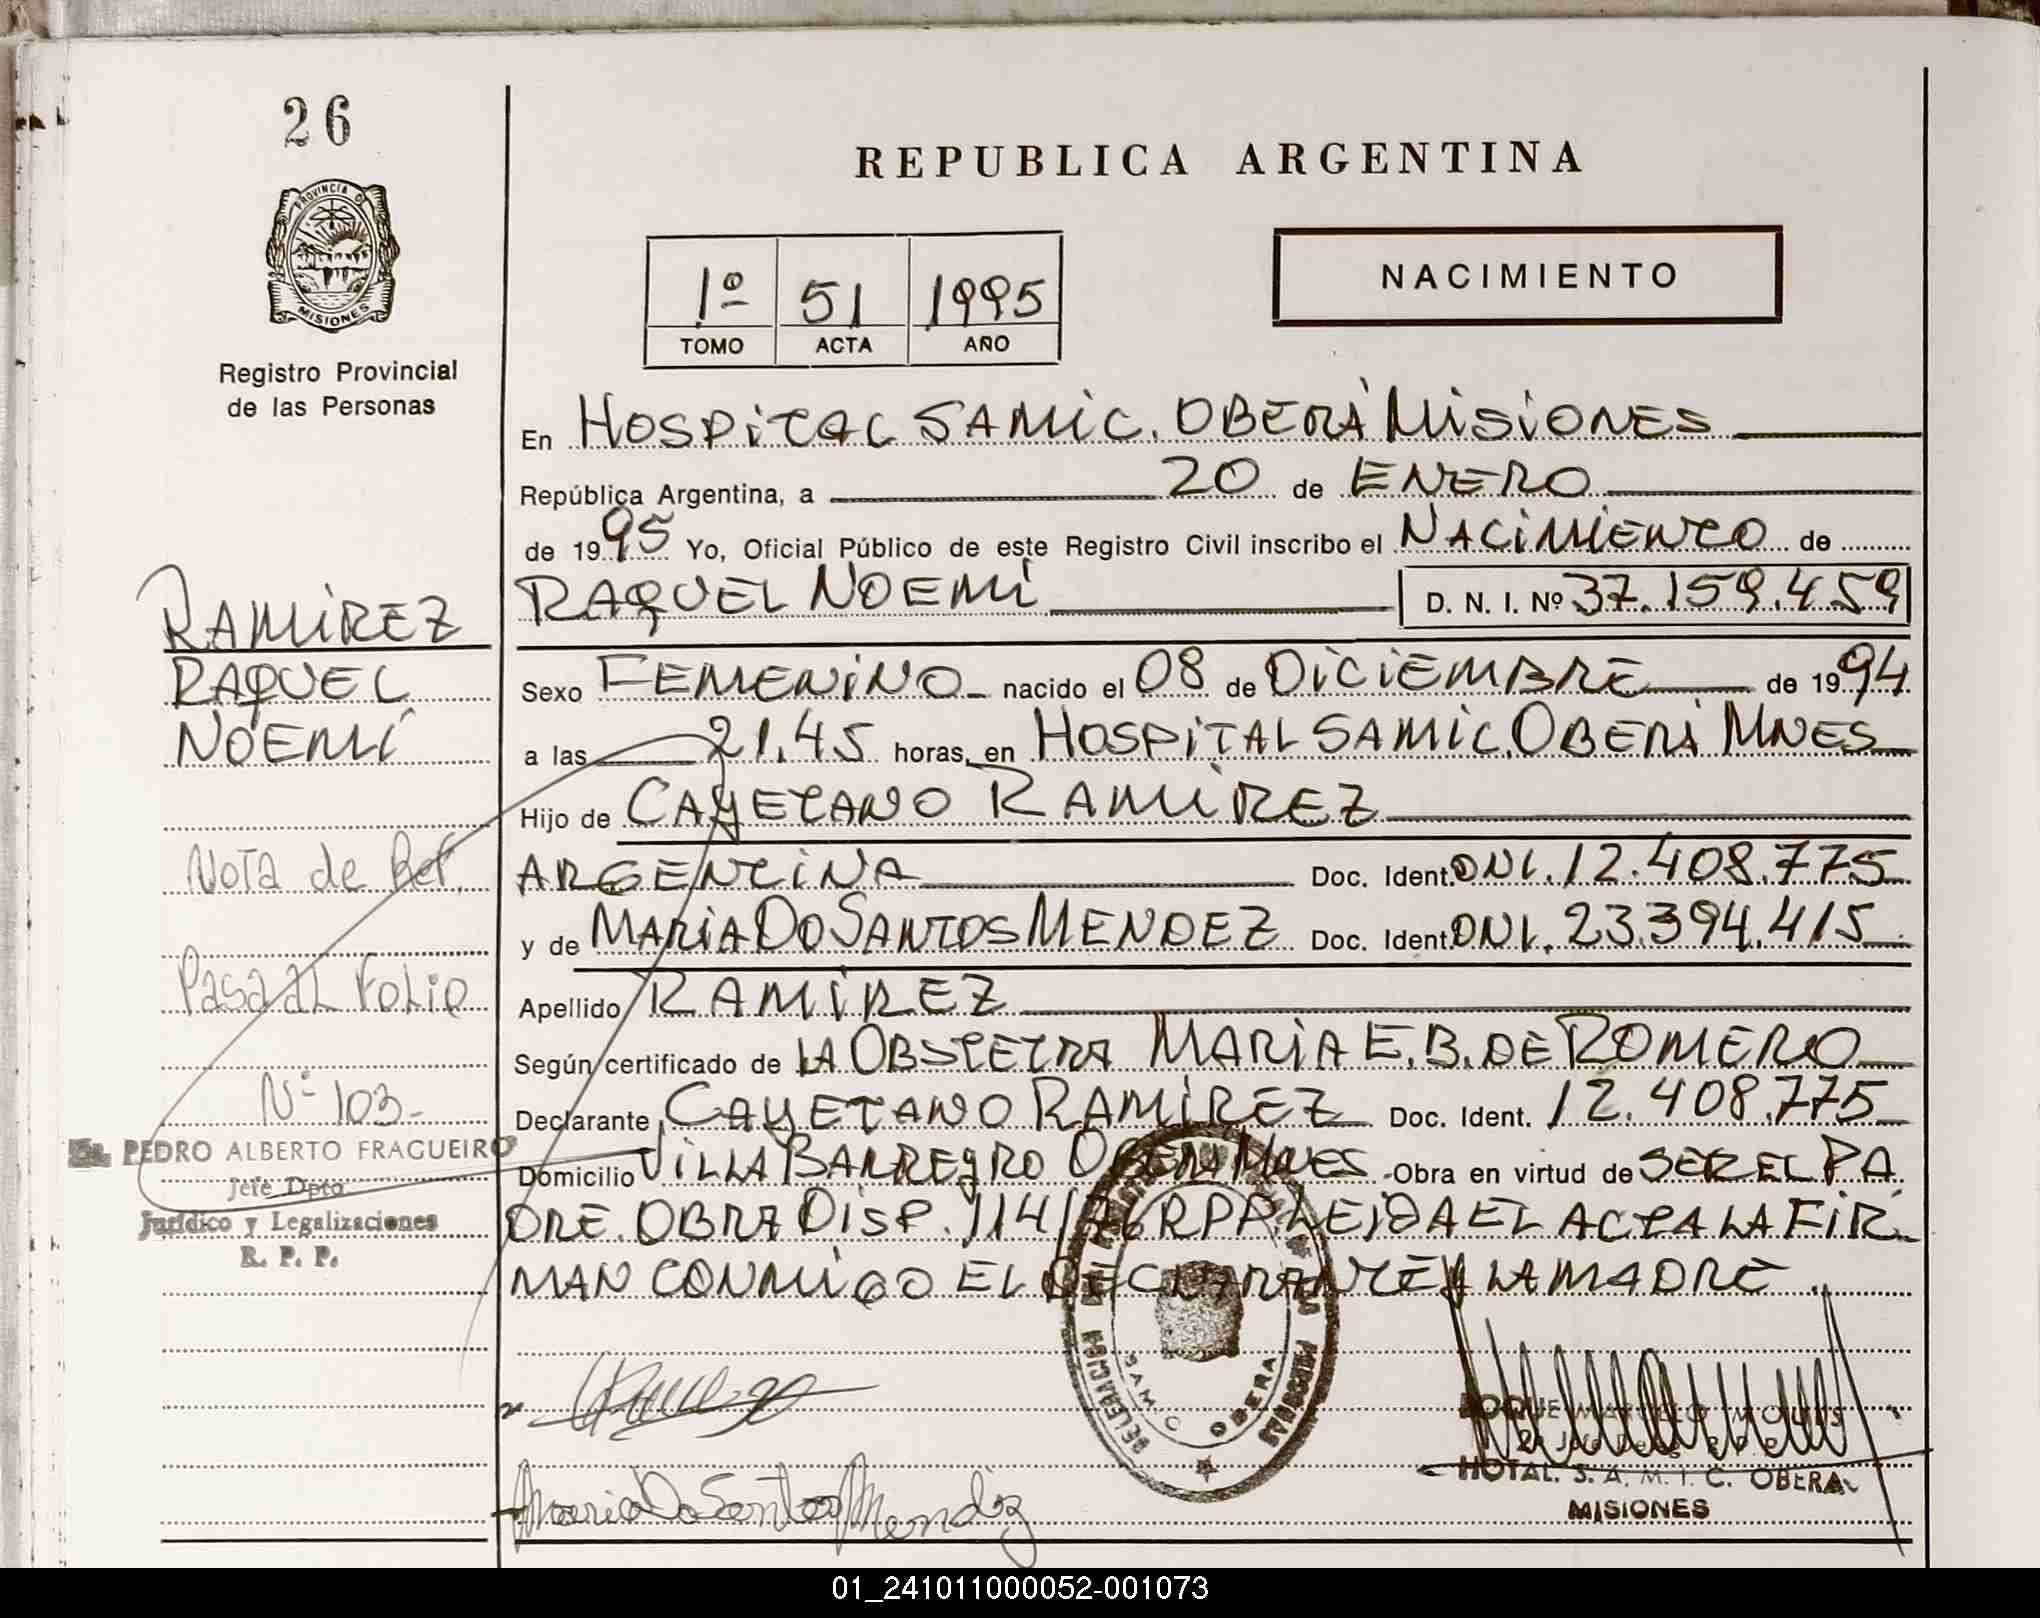 26
REPUBLICA ARGENTINA
PROVINCIA D
MISIONES
Registro Provincial
de las Personas
1º 51 1995
TOMO ACTA AÑO
NACIMIENTO
En HOSPITAL SAMIC. OBERÁ MISIONES
República Argentina, a 20 de ENERO
de 1995 Yo, Oficial Público de este Registro Civil inscribo el NACIMIENTO de
RAQUEL NOEMÍ D. N. I. Nº 37.159.459
RAMÍREZ
RAQUEL
NOEMÍ
Sexo FEMENINO nacido el 08 de DICIEMBRE de 1994
a las 21.45 horas, en HOSPITAL SAMIC. OBERÁ MNES
Hijo de CAYETANO RAMÍREZ
ARGENTINA Doc. Ident. DNI. 12.408.775
y de MARIA DO SANTOS MENDEZ Doc. Ident. DNI. 23.394.415
Apellido RAMÍREZ
Según certificado de LA OBSTETRA MARIA E. B. DE ROMERO
Declarante CAYETANO RAMÍREZ Doc. Ident. 12.408.775
Domicilio VILLA BARREYRO OBERA MNES Obra en virtud de SER EL PA
DRE. OBRA DISP. 114/76 RPP. LEIDA EL ACTA LA FIR
MAN CONMIGO EL DECLARANTE Y LA MADRE
Nota de Ref.
Pasa al Folio
Nº 103-
PEDRO ALBERTO FRAGUEIRO
Jefe Dpto.
Jurídico y Legalizaciones
R. P. P.
DELEGACION
PERSONAS
SAMIC OBERA
Maria Do Santos Mendiz
ROQUE MARCELO
HOTAL. S. A. M. I. C. OBERA
MISIONES
01_241011000052-001073